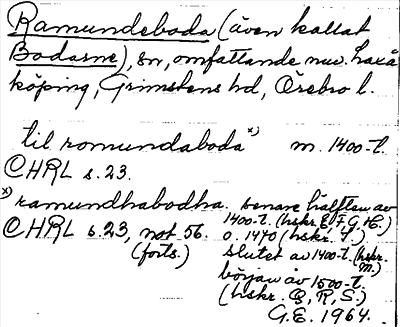 Ramundeboda (även kallat
Bodarne), sn, omfattande nuv. Laxå
köping, Grimstens hd, Örebro l.
til romundaboda x) m. 1400-t.
CHRL s. 23.
x) ramundhabodha. senare hälften av
1400-t. (hskr. E, F, G, H.)
CHRL s. 23, not 56. o. 1470 (hskr. I.)
(forts.) slutet av 1400-t. (hskr.
M.)
början av 1500-t.
(hskr. Q, R, S.)
G.E. 1964.